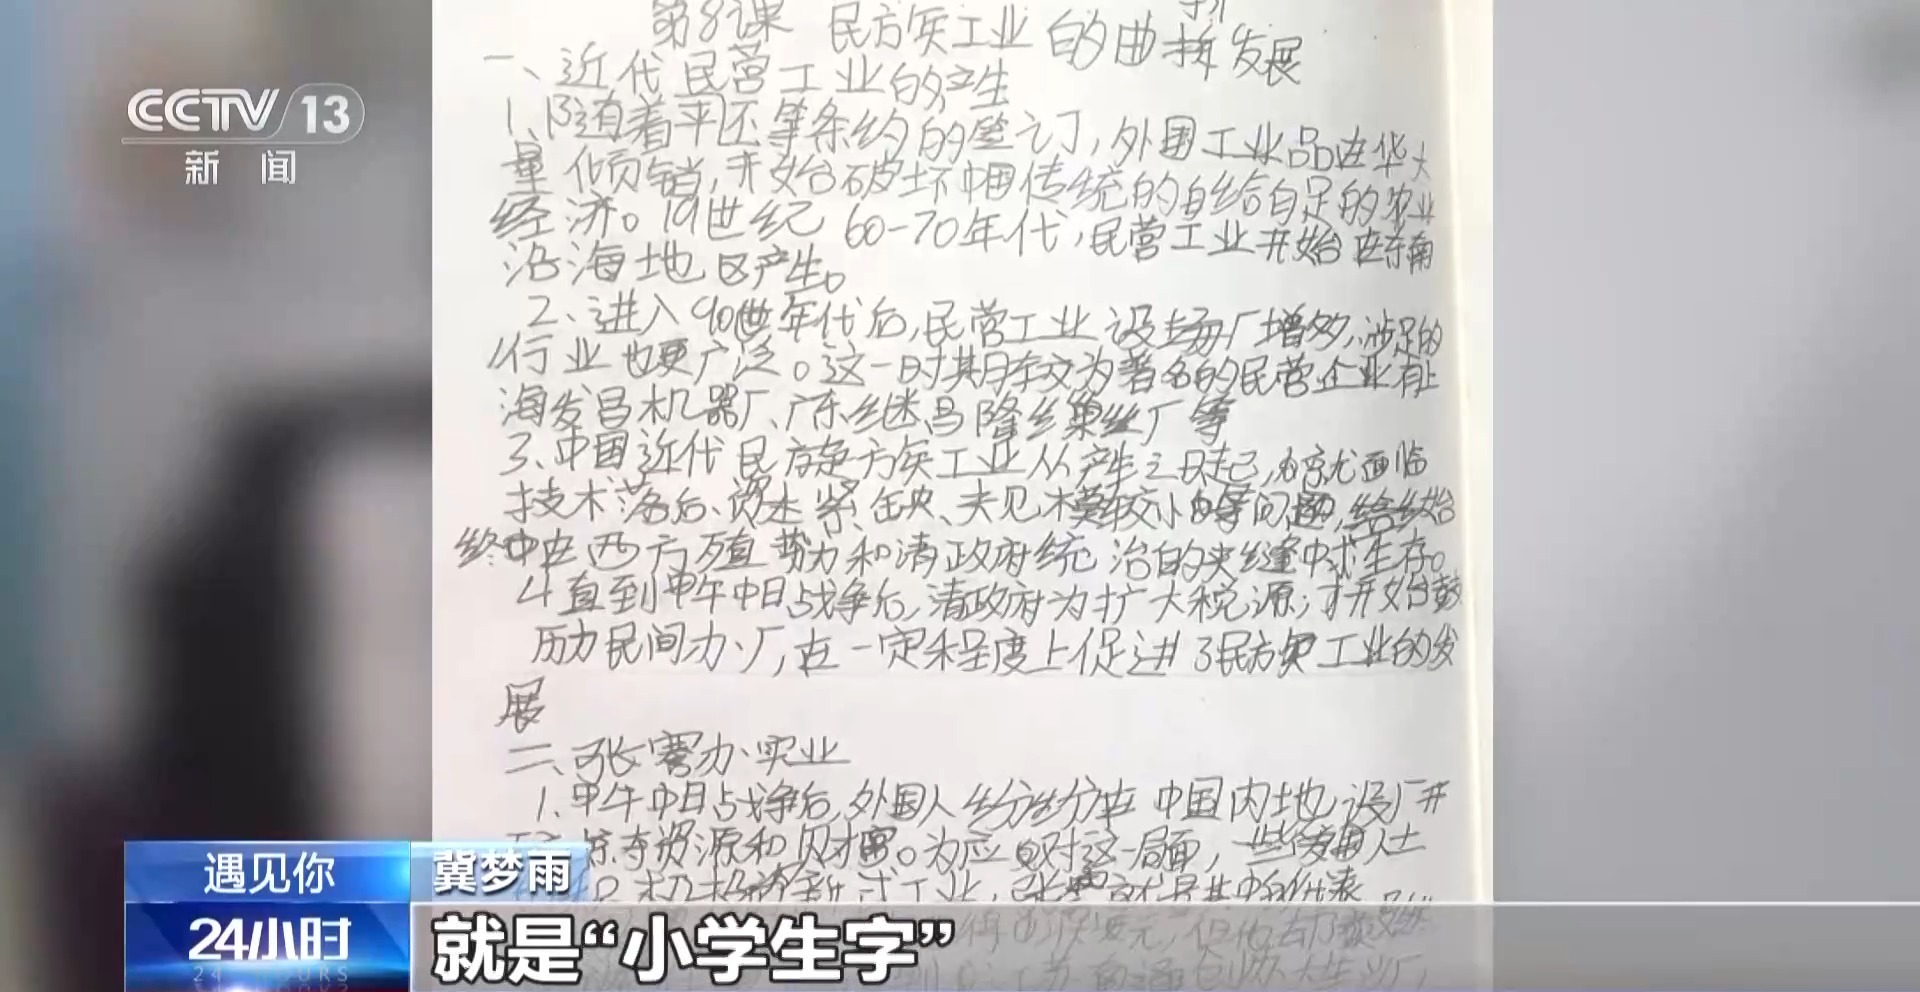 CCTV 13
新闻
第8课 民族工业的曲折发展
一、近代民营工业的产生
1、随着不平等条约的签订，外国工业品在华大
量倾销，开始破坏中国传统的自给自足的农业
经济。19世纪60-70年代，民营工业开始在东南
沿海地区产生。
2、进入90年代后，民营工业设厂增多，涉足的
行业也更广泛。这一时期较为著名的民营企业有上
海发昌机器厂、广东继昌隆缫丝厂等
3、中国近代民族工业从产生之日起，就面临
技术落后、资本紧缺、规模较小等问题，始
终在西方殖民势力和清政府统治的夹缝中求生存。
4直到甲午中日战争后，清政府为扩大税源，才开始鼓
历力民间办厂，在一定程度上促进了民族工业的发
展
二、张謇办实业
1、甲午中日战争后，外国人纷纷在中国内地设厂开
掠夺资源和财富。为应对这一局面，一些爱国人士
工业，张謇就是其中的代表
遇见你
冀梦雨
24小时
24 HOURS
就是“小学生字”